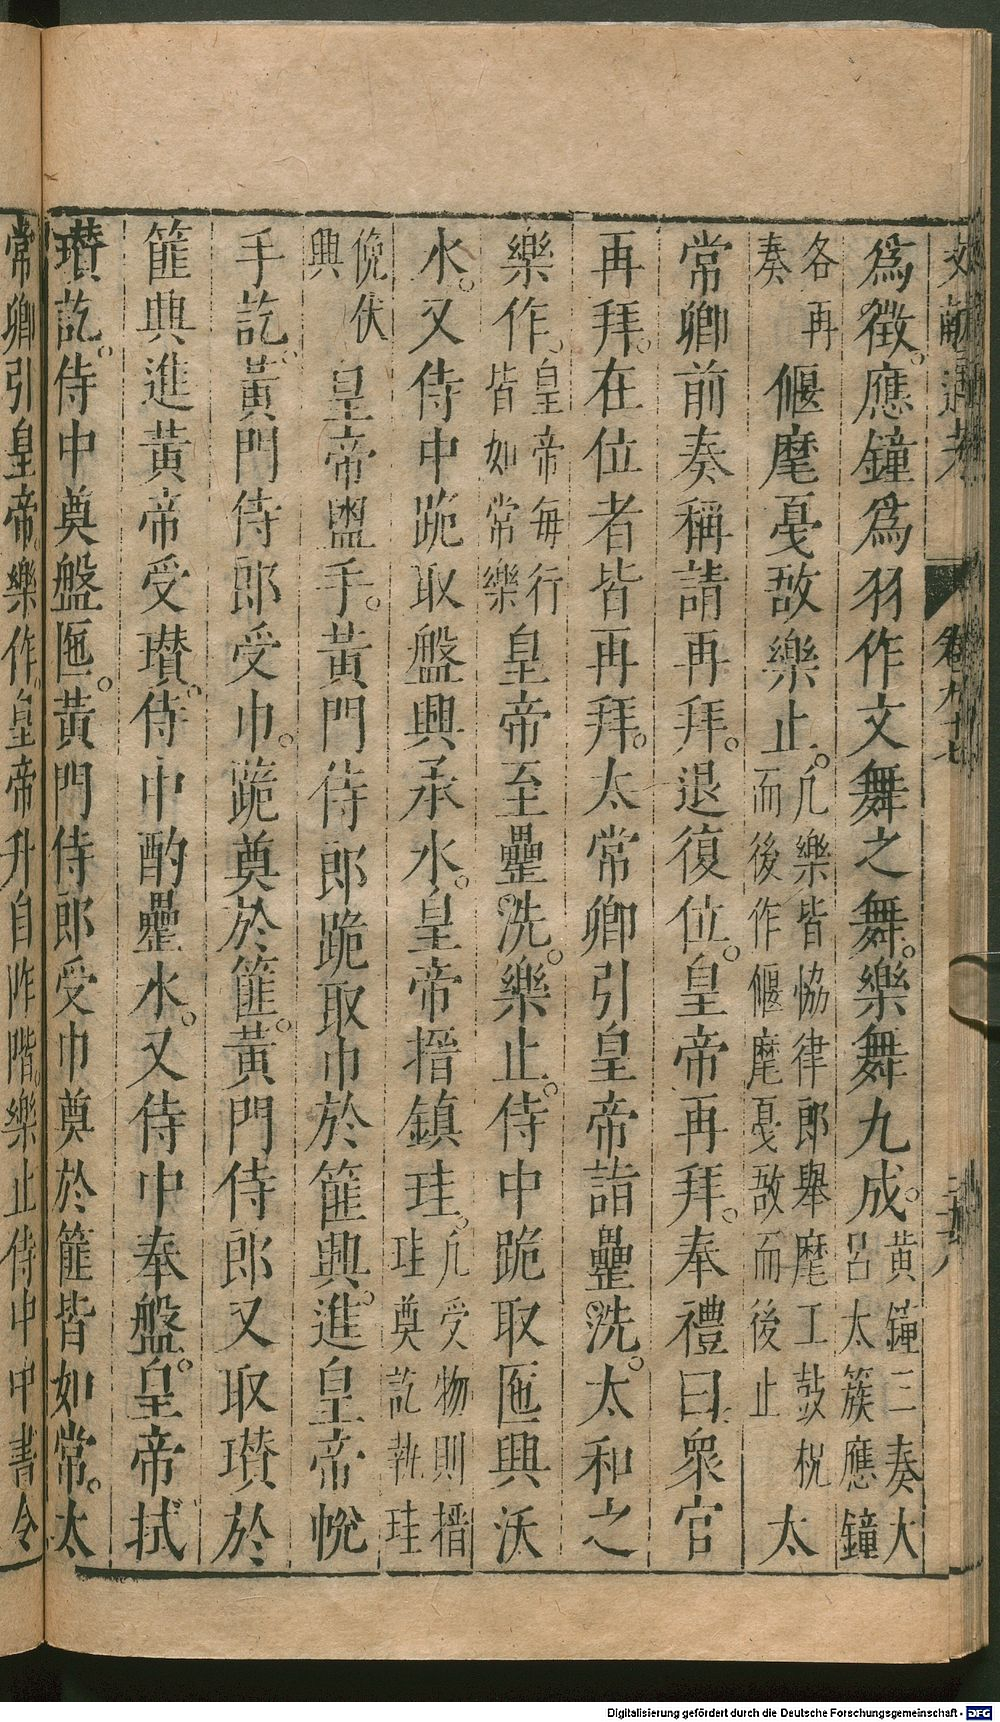 文獻通考 卷九十七
爲徵。應鐘爲羽作文舞之舞。樂舞九成。黃鐘三奏大呂太簇應鐘
各再奏偃麾戛敔樂止。凢樂皆恊律郎舉麾工鼓柷而後作偃麾戛敔而後止太
常卿前奏稱請再拜。退復位。皇帝再拜。奉禮曰衆官
再拜。在位者皆再拜。太常卿引皇帝詣罍洗。太和之
樂作。皇帝每行皆如常樂皇帝至罍洗。樂止。侍中跪取匜興沃
水。又侍中跪取盤興承水。皇帝搢鎮珪。凢受物則搢珪奠訖執珪
俛伏興皇帝盥手。黃門侍郎跪取巾於篚興。進皇帝帨
手訖。黃門侍郎受巾。跪奠於篚。黃門侍郎又取瓚於
篚興進黃帝受瓚。侍中酌罍水。又侍中奉盤。皇帝拭
瓚訖。侍中奠盤匜。黃門侍郎受巾奠於篚皆如常。太
常卿引皇帝。樂作。皇帝升自阼階。樂止侍中中書令
Digitalisierung gefördert durch die Deutsche Forschungsgemeinschaft - DFG